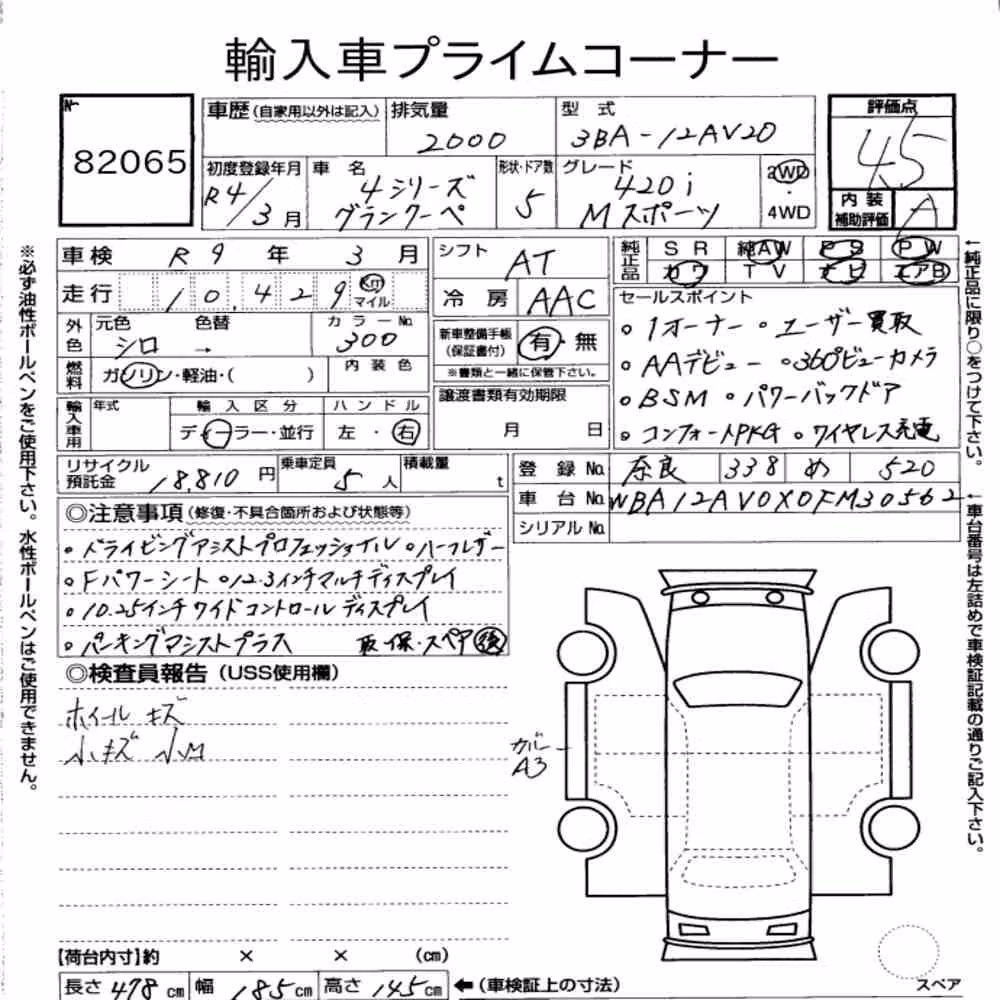 輸入車プライムコーナー
No.
82065
車歴(自家用以外は記入)
排気量
2000
型 式
3BA-12AV20
評価点
4.5
初度登録年月
R4/3月
車 名
4シリーズ
グランクーペ
形状・ドア数
5
グレード
420i
Mスポーツ
2WD
・
4WD
内 装
補助評価
A
車検 R 9 年 3 月
走行 10,429 km マイル
外色
元色 色替
シロ →
カラーNo.
300
燃料
ガソリン・軽油・( )
内 装 色
輸入車用
年式
輸 入 区 分
ディーラー・並行
ハ ン ド ル
左 ・ 右
リサイクル
預託金 18,810 円
乗車定員
5 人
積載量
t
シフト
AT
冷 房
AAC
新車整備手帳
(保証書付)
有・無
※書類と一緒に保管下さい。
譲渡書類有効期限
月 日
純正品
SR 純AW PS PW
カワ TV ナビ エアB
セールスポイント
。1オーナー 。ユーザー買取
。AAデビュー 。360°ビューカメラ
。BSM 。パワーバックドア
。コンフォートPKG 。ワイヤレス充電
登 録 No. 奈良 338 め 520
車 台 No. WBA12AV0X0FM30562
シリアル No.
◎注意事項(修復・不具合箇所および状態等)
。ドライビングアシストプロフェッショナル 。ハーフレザー
。Fパワーシート 。12.3インチマルチディスプレイ
。10.25インチワイドコントロールディスプレイ
。パーキングアシストプラス 取・保・スペア 後
◎検査員報告(USS使用欄)
ホイール キズ
小キズ 小凹
カバー
A3
【荷台内寸】約 × × (cm)
長さ 478 cm 幅 185 cm 高さ 145 cm ←(車検証上の寸法)
スペア
※必ず油性ボールペンをご使用下さい。水性ボールペンはご使用できません。
←純正品に限り○をつけて下さい。
←車台番号は左詰めで車検証記載の通りご記入下さい。